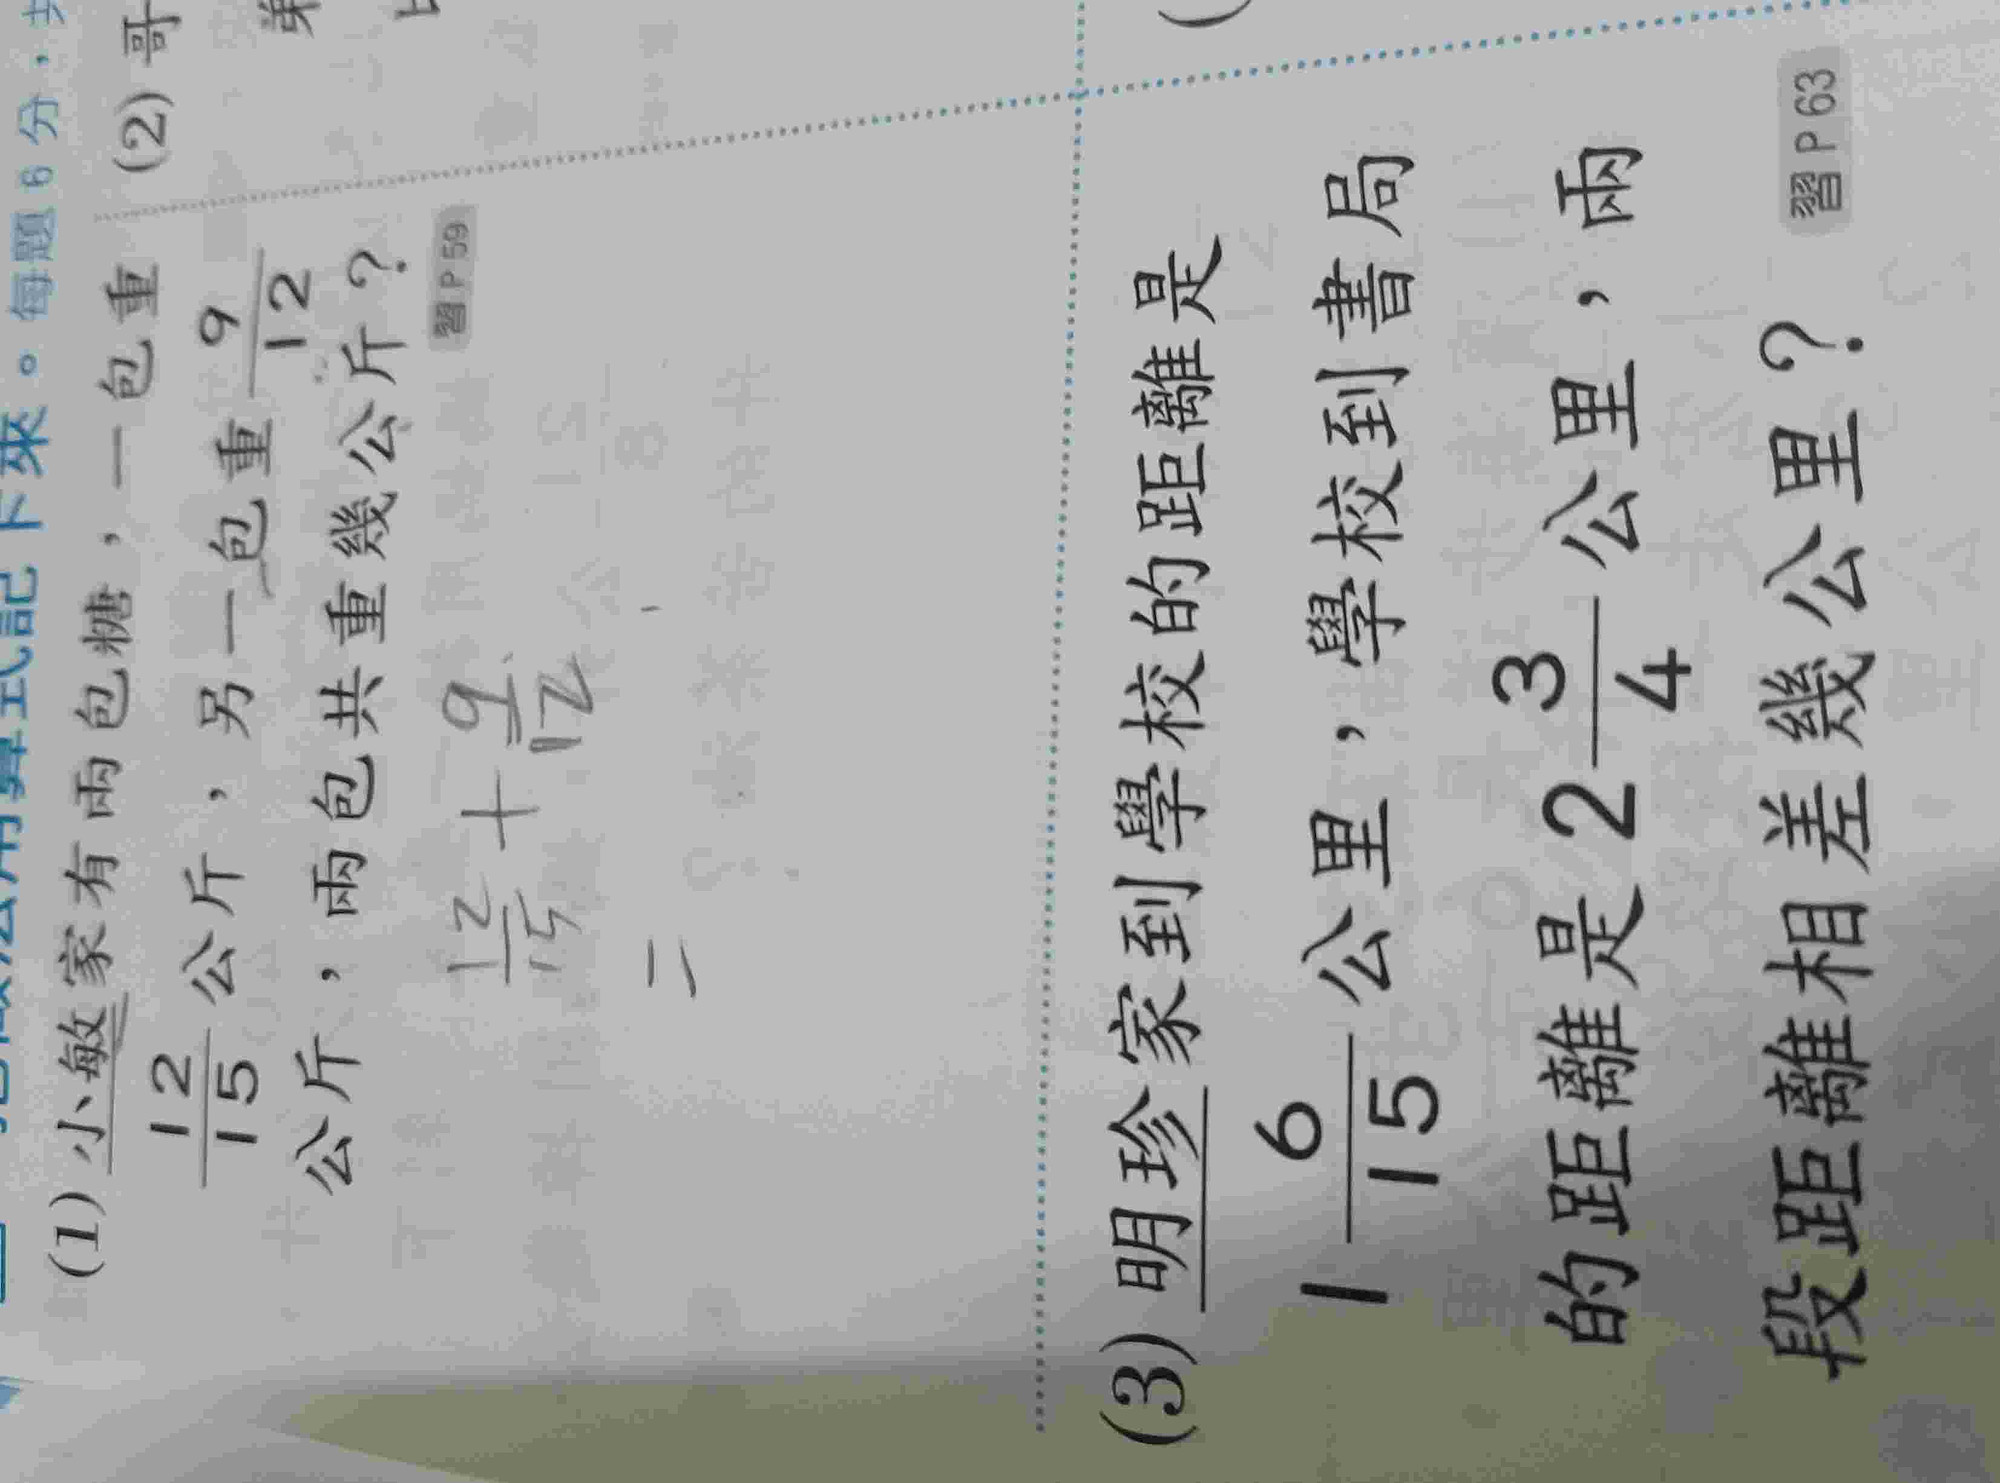 用算式記下來。每題6分，
(1) 小敏家有兩包糖，一包重
12/15公斤，另一包重9/12
公斤，兩包共重幾公斤？
習P59
12/15 + 9/12
=
(2) 哥
弟
(3) 明珍家到學校的距離是
1 6/15公里，學校到書局
的距離是2 3/4公里，兩
段距離相差幾公里？
習P63